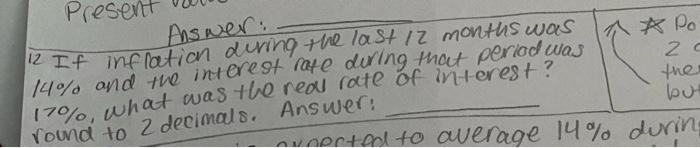 Present
Answer:
12 If inflation during the last 12 months was
14% and the interest rate during that period was
17%, what was the real rate of interest?
round to 2 decimals. Answer:
expected to average 14%
☆ Do
2
the
but